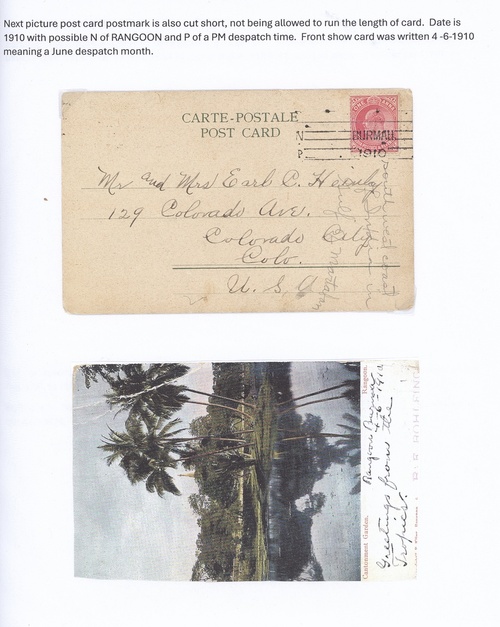 Next picture post card postmark is also cut short, not being allowed to run the length of card. Date is
1910 with possible N of RANGOON and P of a PM despatch time. Front show card was written 4 -6-1910
meaning a June despatch month.
CARTE-POSTALE
POST CARD
N
BURMAH
P
1910
Mr and Mrs Earl C.
129 Colorado Ave.
Colorado City
Colo.
U.S.A
Cantonment Garden. Rangoon.
Rangoon Burma
4-6-1910
Greetings from the
Tropics.